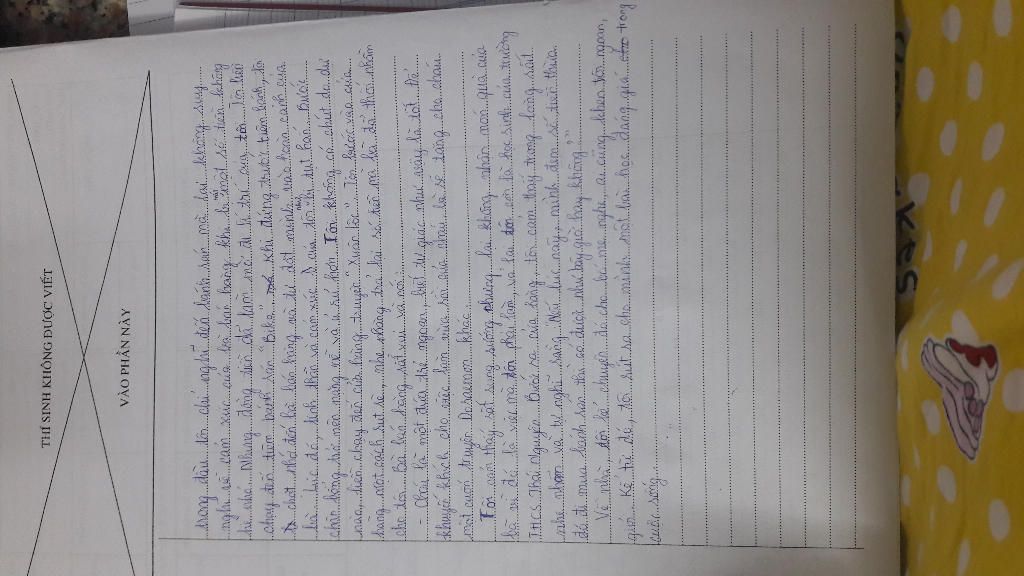 THÍ SINH KHÔNG ĐƯỢC VIẾT
VÀO PHẦN NÀY
trong đầu tôi chỉ nghĩ đến bánh sắn mà lại không suy
nghĩ về cảm xúc của bà bán hàng khi bị mất số tiền không
hề nhẹ. Nhưng đồng tiền đã làm mờ đi lí trí của tôi. Tôi liền
chạy đến tiệm bánh sắn "Bike". Khi đứng trước tiệm bánh, tôi
chợt nhớ đến bà bán hàng và tự đặt mình vào hoàn cảnh của
bà lúc đó, tinh thần và cảm xúc của tôi thì tụt hẳn. Bước
chân bỗng trở nên nặng nề và ủ rũ hơn. Tôi không có chút do dự
nào, liền chạy thẳng tới cửa hàng truyện "Xuân Lộc". Tôi bước vào cửa
hàng một cách rụt rè, nhẹ nhàng trả lại số tiền mà bà đã thối nhầm
cho tôi. Bà bán hàng rất vui và nói:
- Cháu là một đứa trẻ ngoan, biết tự giác như vậy là tốt. Để
khuyến khích cho việc làm vừa rồi của cháu, bà sẽ tặng cho cháu
một cuốn truyện Doraemon khác.
Tôi cảm thấy rất sung sướng nhưng lại không nhận món quà của
bà vì đó là việc mà tôi phải làm và lại tôi còn là học sinh của trường
THCS Thái Nguyên. Bước ra cửa hàng, tôi cảm thấy trong lòng rất
nhẹ nhõm và tự nghĩ rằng: "Nếu lúc nãy, mình đem số tiền thừa
để đi mua bánh sắn thì có được như bây giờ hay không."
Về nhà tôi kể chuyện đó cho bố mẹ nghe, ai cũng khen tôi ngoan,
giỏi. Kể từ đó, tôi rút ra cho mình một bài học đáng giá trong
cuộc sống.